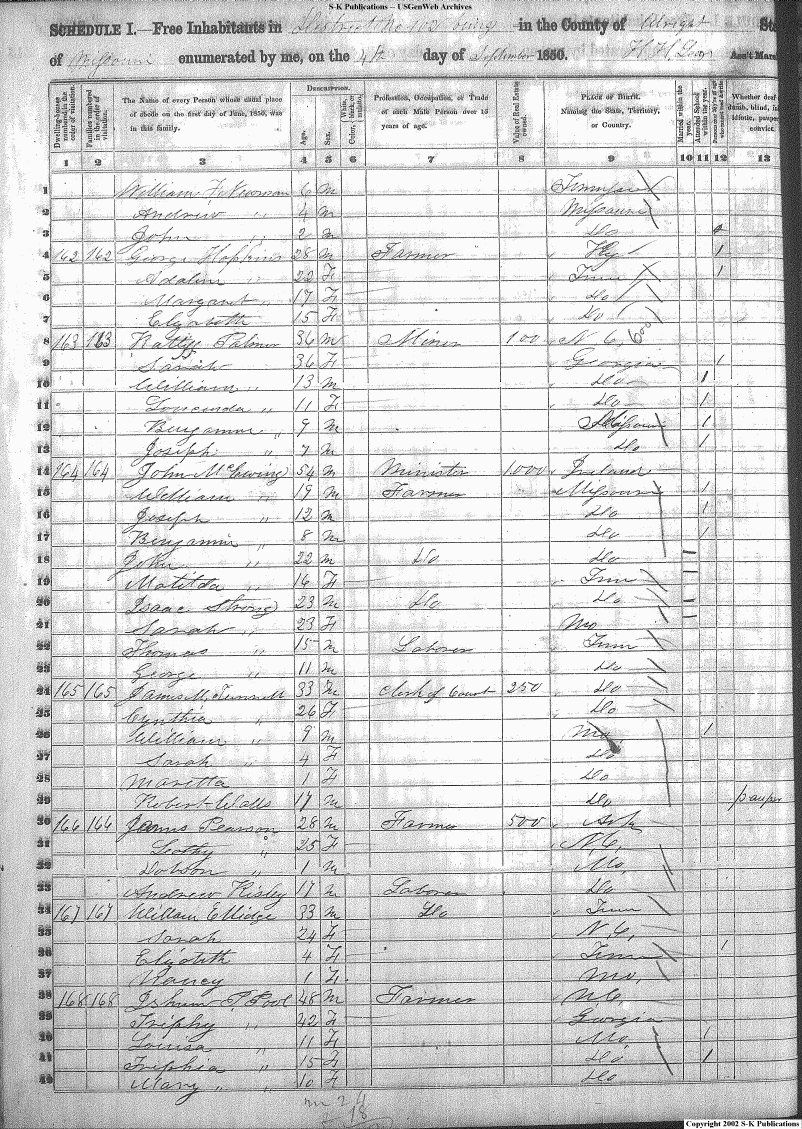 S-K Publications -- USGenWeb Archives
SCHEDULE I.—Free Inhabitants in District No 112 being in the County of Wright
of Missouri enumerated by me, on the 4th day of September 1850. Ass't Mars
Dwelling-houses numbered in the order of visitation. Families numbered in the order of visitation. The Name of every Person whose usual place of abode on the first day of June, 1850, was in this family. Description. Age. Sex. Color, White, black, or mulatto. Profession, Occupation, or Trade of each Male Person over 15 years of age. Value of Real Estate owned. Place of Birth. Naming the State, Territory, or Country. Married within the year. Attended School within the year. Whether deaf
1 2 3 4 5 6 7 8 9 10 11 12 13
1 William F Newman 6 M Tennessee
2 Andrew " 4 M Missouri
3 John " 2 M Do
4 162 162 George Hopkins 28 M Farmer Ky 1
5 Adaline " 22 F Tenn 1
6 Margaret " 17 F Do
7 Elizabeth 15 F Do
8 163 163 Palmer 36 M Miner 100 N C 600
9 Sarah 36 F Georgia 1
10 William " 13 M Do 1
11 Loucinda " 11 F Do 1
12 Benjamin " 9 M Missouri 1
13 Joseph " 7 M Do 1
14 164 164 John McEwing 54 M Minister 1000 Ireland
15 William " 19 M Farmer Missouri 1
16 Joseph " 12 M Do 1
17 Benjamin " 8 M Do 1
18 John " 22 M Do Do 1
19 Matilda " 16 F Tenn 1
20 Isaac Strong 23 M Do Do 1
21 Sarah " 23 F Mo 1
22 Thomas " 15 M Laborer Tenn
23 George " 11 M Do
24 165 165 James 33 M Clerk of Court 250 Do
25 Cynthia " 26 F Do
26 William " 9 M Mo, 1
27 Sarah " 4 F Do
28 Maretta 1 F Do
29 Robert Walls 17 M Do pauper
30 166 166 James Pearson 28 M Farmer 500 Ark
31 " 25 F N C,
32 Dobson " 1 M Mo,
33 Andrew 17 M Laborer Do
34 167 167 William Ellidge 33 M Do Tenn
35 Sarah 24 F N C,
36 Elizabeth 4 F Tenn 1
37 Nancy 1 F Mo,
38 168 168 Isham P. Pool 48 M Farmer N C,
39 Triphy " 42 F Georgia
40 Louisa " 11 F Mo, 1
41 Triphia " 15 F Do 1
42 Mary " " 10 F Do
18
Copyright 2002 S-K Publications